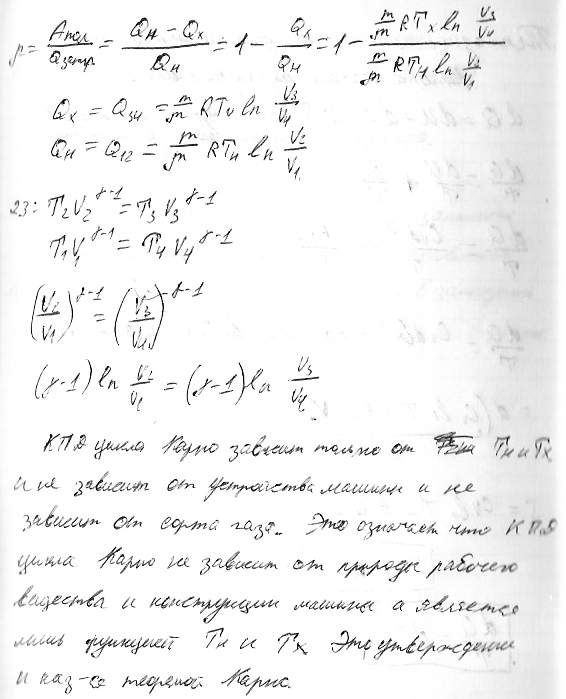 η = Aпол/Qзатр = (Qн − Qx)/Qн = 1 − Qx/Qн = 1 − (m/m RTx ln V3/V4)/(m/m RTн ln V2/V1)
Qx = Q34 = m/m RTx ln V3/V4
Qн = Q12 = m/m RTн ln V2/V1
23: T2V2^γ-1 = T3V3^γ-1
T1V1^γ-1 = T4V4^γ-1
(V2/V1)^γ-1 = (V3/V4)^γ-1
(γ-1) ln V2/V1 = (γ-1) ln V3/V4
КПД цикла Карно зависит только от Tн и Tx
и не зависит от устройства машины и не
зависит от сорта газа. Это означает что КПД
цикла Карно не зависит от природы рабочего
вещества и конструкции машины а является
лишь функцией Tн и Tx Это утверждение
и наз-ся теоремой Карно.